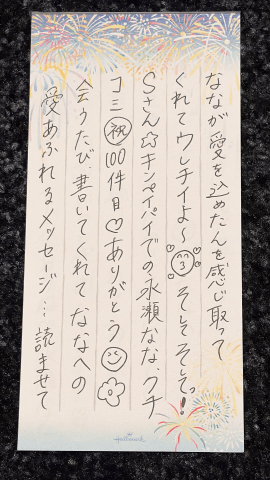 ななが愛を込めたんを感じ取って
くれてウレチイよ〜そしてそしてっ!
Sさん☆キンペイパイでの永瀬なな、クチ
コミ祝100件目♡ありがとう
会うたび書いてくれて ななへの
愛あふれるメッセージ…読ませて
Hallmark